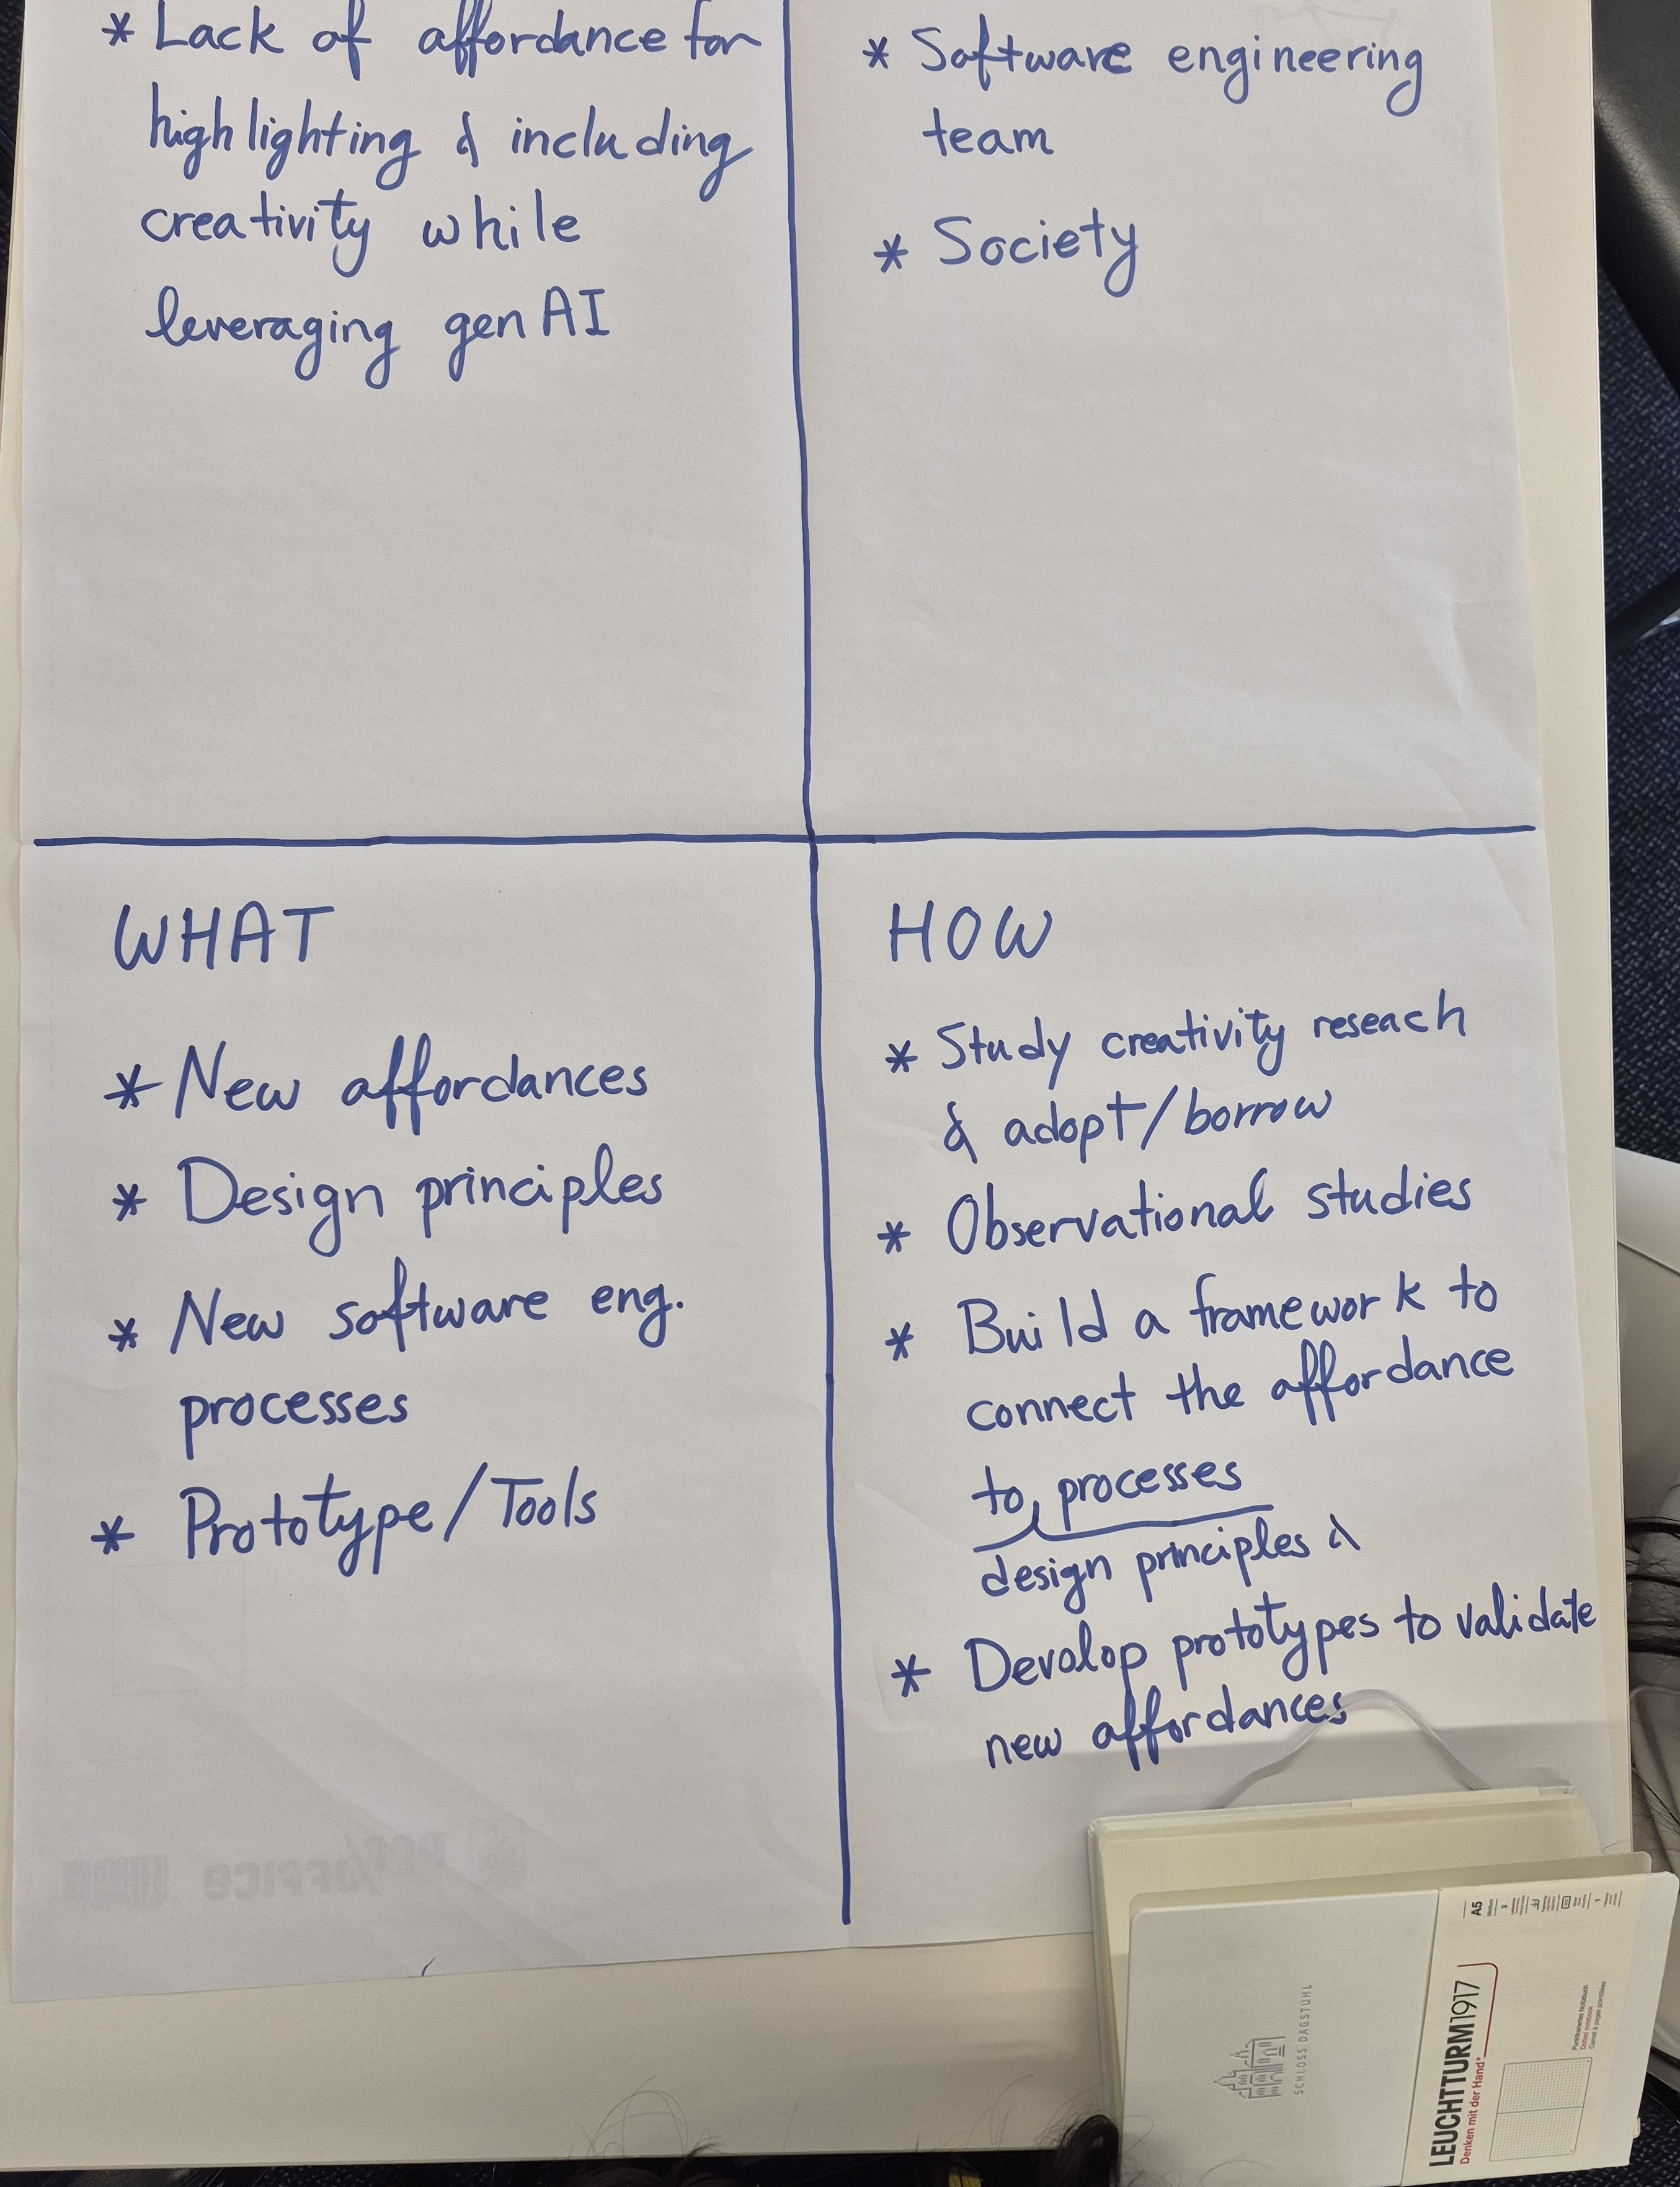 * Lack of affordance for
highlighting & including
creativity while
leveraging gen AI
* Software engineering
team
* Society
WHAT
* New affordances
* Design principles
* New software eng.
processes
* Prototype/Tools
HOW
* Study creativity reseach
& adopt/borrow
* Observational studies
* Build a framework to
connect the affordance
to processes
design principles &
* Devolop prototypes to validate
new affordances
SCHLOSS DAGSTUHL
LEUCHTTURM1917
Denken mit der Hand*
A5